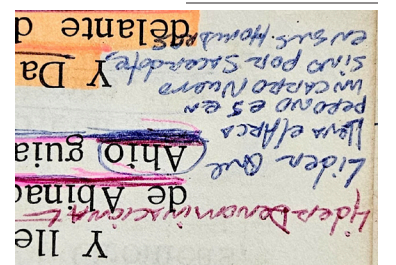 Y lle
de Abinad
Ahío guia
Y Da
delante d
Lider Denominacional
Lider que
lleva el Arca
pero no es en
un carro Nuevo
sino por sacerdotes,
en sus Hombros